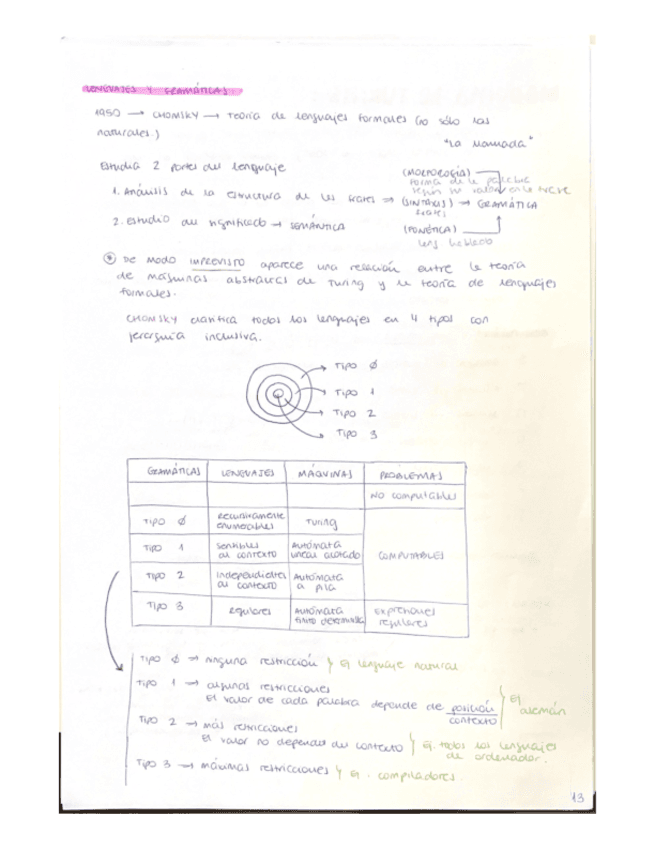 LENGUAJES Y GRAMÁTICAS
1950 → CHOMSKY → Teoría de lenguajes formales (no sólo los
naturales.)
"La llamada"
Estudia 2 partes del lenguaje
(MORFOLOGÍA)
forma de la palabra
según su en la frase
1. Análisis de la estructura de las frases → (SINTAXIS) → GRAMÁTICA
frases
2. Estudio del significado → SEMÁNTICA
(FONÉTICA)
leng hablado
* De modo IMPREVISTO aparece una relación entre la teoría
de máquinas abstractas de Turing y la teoría de lenguajes
formales.
CHOMSKY clasifica todos los lenguajes en 4 tipos con
jerarquía inclusiva.
TIPO Ø
TIPO 1
TIPO 2
TIPO 3
GRAMÁTICAS LENGUAJES MÁQUINAS PROBLEMAS
No computables
TIPO Ø recursivamente enumerables Turing
TIPO 1 sensibles al contexto Autómata lineal acotado COMPUTABLES
TIPO 2 Independientes al contexto Autómata a pila
TIPO 3 regulares Autómata finito determinista Expresiones regulares
Tipo Ø → ninguna restricción } Ej lenguaje natural
Tipo 1 → algunas restricciones
El valor de cada palabra depende de posición } Ej alemán
contexto
Tipo 2 → más restricciones
El valor no depende del contexto } Ej. todos los lenguajes
de ordenador.
Tipo 3 → máximas restricciones } Ej. compiladores.
13